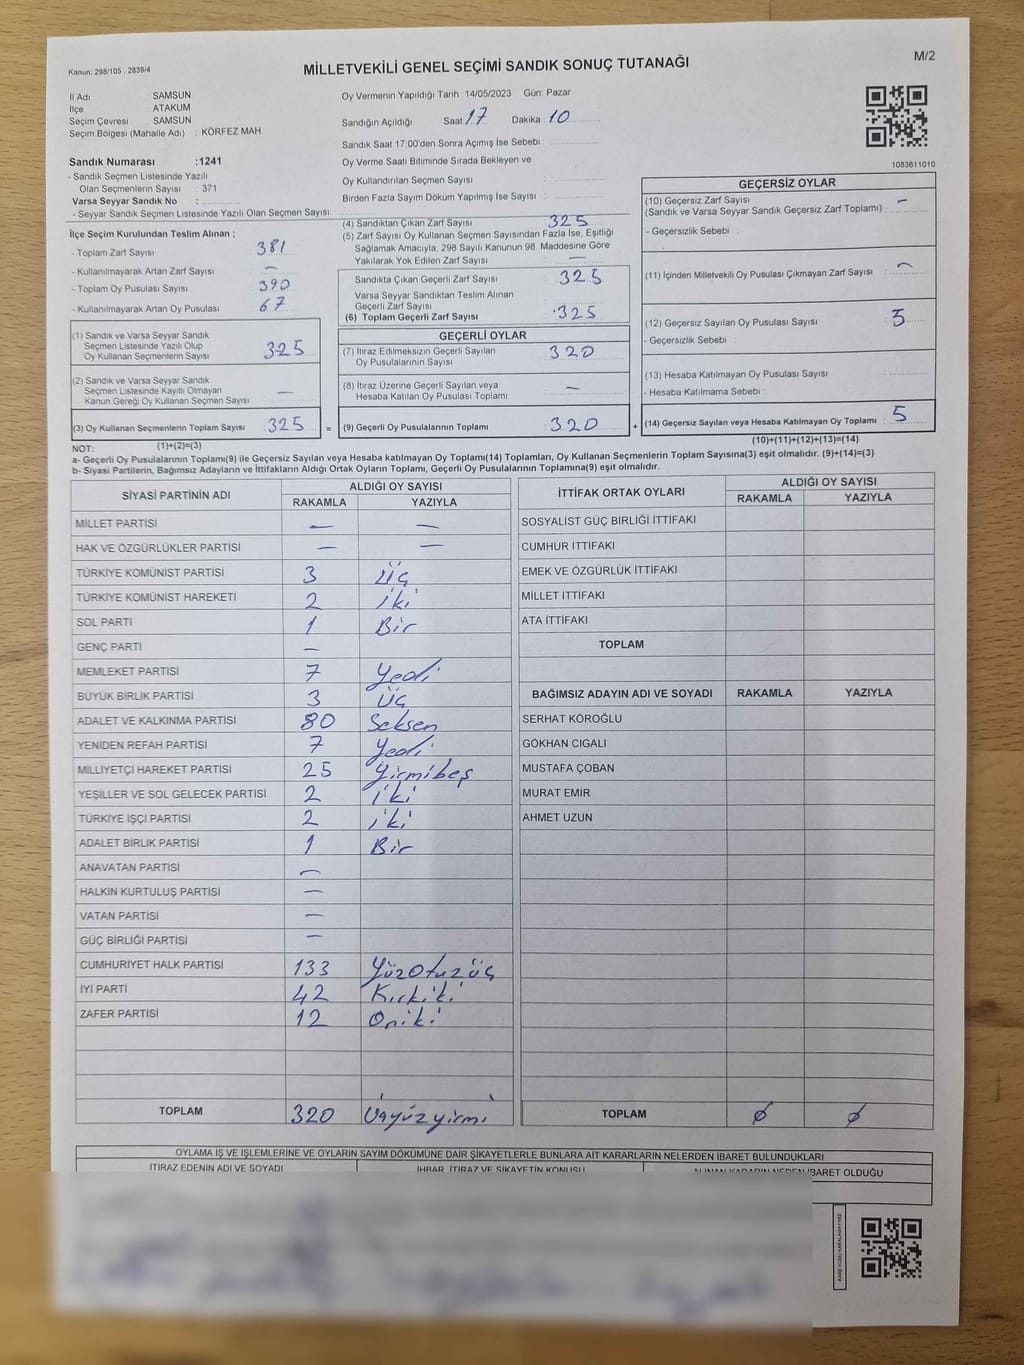 Kanun: 298/105 , 2839/4
MİLLETVEKİLİ GENEL SEÇİMİ SANDIK SONUÇ TUTANAĞI
M/2
İl Adı SAMSUN
İlçe ATAKUM
Seçim Çevresi SAMSUN
Seçim Bölgesi (Mahalle Adı) : KÖRFEZ MAH.
Sandık Numarası :1241
- Sandık Seçmen Listesinde Yazılı
Olan Seçmenlerin Sayısı : 371
Varsa Seyyar Sandık No :
- Seyyar Sandık Seçmen Listesinde Yazılı Olan Seçmen Sayısı:
Oy Vermenin Yapıldığı Tarih :14/05/2023 Gün: Pazar
Sandığın Açıldığı Saat: 17 Dakika : 10
Sandık Saat 17:00'den Sonra Açılmış İse Sebebi :
Oy Verme Saati Bitiminde Sırada Bekleyen ve
Oy Kullandırılan Seçmen Sayısı :
Birden Fazla Sayım Döküm Yapılmış İse Sayısı :
1083611010
İlçe Seçim Kurulundan Teslim Alınan ;
- Toplam Zarf Sayısı : 381
- Kullanılmayarak Artan Zarf Sayısı : —
- Toplam Oy Pusulası Sayısı : 390
- Kullanılmayarak Artan Oy Pusulası : 67
(1) Sandık ve Varsa Seyyar Sandık
Seçmen Listesinde Yazılı Olup
Oy Kullanan Seçmenlerin Sayısı : 325
(2) Sandık ve Varsa Seyyar Sandık
Seçmen Listesinde Kayıtlı Olmayan
Kanun Gereği Oy Kullanan Seçmen Sayısı : —
(3) Oy Kullanan Seçmenlerin Toplam Sayısı : 325 =
(4) Sandıktan Çıkan Zarf Sayısı : 325
(5) Zarf Sayısı Oy Kullanan Seçmen Sayısından Fazla İse, Eşitliği
Sağlamak Amacıyla, 298 Sayılı Kanunun 98. Maddesine Göre
Yakılarak Yok Edilen Zarf Sayısı : —
Sandıkta Çıkan Geçerli Zarf Sayısı : 325
Varsa Seyyar Sandıktan Teslim Alınan
Geçerli Zarf Sayısı :
(6) Toplam Geçerli Zarf Sayısı : 325
GEÇERLİ OYLAR
(7) İtiraz Edilmeksizin Geçerli Sayılan
Oy Pusulalarının Sayısı : 320
(8) İtiraz Üzerine Geçerli Sayılan veya
Hesaba Katılan Oy Pusulası Toplamı : —
(9) Geçerli Oy Pusulalarının Toplamı : 320 +
GEÇERSİZ OYLAR
(10) Geçersiz Zarf Sayısı
(Sandık ve Varsa Seyyar Sandık Geçersiz Zarf Toplamı) : —
- Geçersizlik Sebebi :
(11) İçinden Milletvekili Oy Pusulası Çıkmayan Zarf Sayısı : —
(12) Geçersiz Sayılan Oy Pusulası Sayısı : 5
- Geçersizlik Sebebi :
(13) Hesaba Katılmayan Oy Pusulası Sayısı :
- Hesaba Katılmama Sebebi :
(14) Geçersiz Sayılan veya Hesaba Katılmayan Oy Toplamı : 5
NOT: (1)+(2)=(3)
(10)+(11)+(12)+(13)=(14)
a- Geçerli Oy Pusulalarının Toplamı(9) ile Geçersiz Sayılan veya Hesaba katılmayan Oy Toplamı(14) Toplamları, Oy Kullanan Seçmenlerin Toplam Sayısına(3) eşit olmalıdır. (9)+(14)=(3)
b- Siyasi Partilerin, Bağımsız Adayların ve İttifakların Aldığı Ortak Oyların Toplamı, Geçerli Oy Pusulalarının Toplamına(9) eşit olmalıdır.
SİYASİ PARTİNİN ADI ALDIĞI OY SAYISI
RAKAMLA YAZIYLA
MİLLET PARTİSİ — —
HAK VE ÖZGÜRLÜKLER PARTİSİ — —
TÜRKİYE KOMÜNİST PARTİSİ 3 Üç
TÜRKİYE KOMÜNİST HAREKETİ 2 iki
SOL PARTİ 1 Bir
GENÇ PARTİ —
MEMLEKET PARTİSİ 7 Yedi
BÜYÜK BİRLİK PARTİSİ 3 Üç
ADALET VE KALKINMA PARTİSİ 80 Seksen
YENİDEN REFAH PARTİSİ 7 Yedi
MİLLİYETÇİ HAREKET PARTİSİ 25 Yirmibeş
YEŞİLLER VE SOL GELECEK PARTİSİ 2 iki
TÜRKİYE İŞÇİ PARTİSİ 2 iki
ADALET BİRLİK PARTİSİ 1 Bir
ANAVATAN PARTİSİ —
HALKIN KURTULUŞ PARTİSİ —
VATAN PARTİSİ —
GÜÇ BİRLİĞİ PARTİSİ —
CUMHURİYET HALK PARTİSİ 133 Yüzotuzüç
İYİ PARTİ 42 Kırkiki
ZAFER PARTİSİ 12 Oniki
TOPLAM 320 Üçyüzyirmi
İTTİFAK ORTAK OYLARI ALDIĞI OY SAYISI
RAKAMLA YAZIYLA
SOSYALİST GÜÇ BİRLİĞİ İTTİFAKI
CUMHUR İTTİFAKI
EMEK VE ÖZGÜRLÜK İTTİFAKI
MİLLET İTTİFAKI
ATA İTTİFAKI
TOPLAM
BAĞIMSIZ ADAYIN ADI VE SOYADI RAKAMLA YAZIYLA
SERHAT KÖROĞLU
GÖKHAN CIGALI
MUSTAFA ÇOBAN
MURAT EMİR
AHMET UZUN
TOPLAM ∅ ∅
OYLAMA İŞ VE İŞLEMLERİNE VE OYLARIN SAYIM DÖKÜMÜNE DAİR ŞİKAYETLERLE BUNLARA AİT KARARLARIN NELERDEN İBARET BULUNDUKLARI
İTİRAZ EDENİN ADI VE SOYADI İHBAR, İTİRAZ VE ŞİKAYETİN KONUSU ALINAN KARARIN NEDEN İBARET OLDUĞU